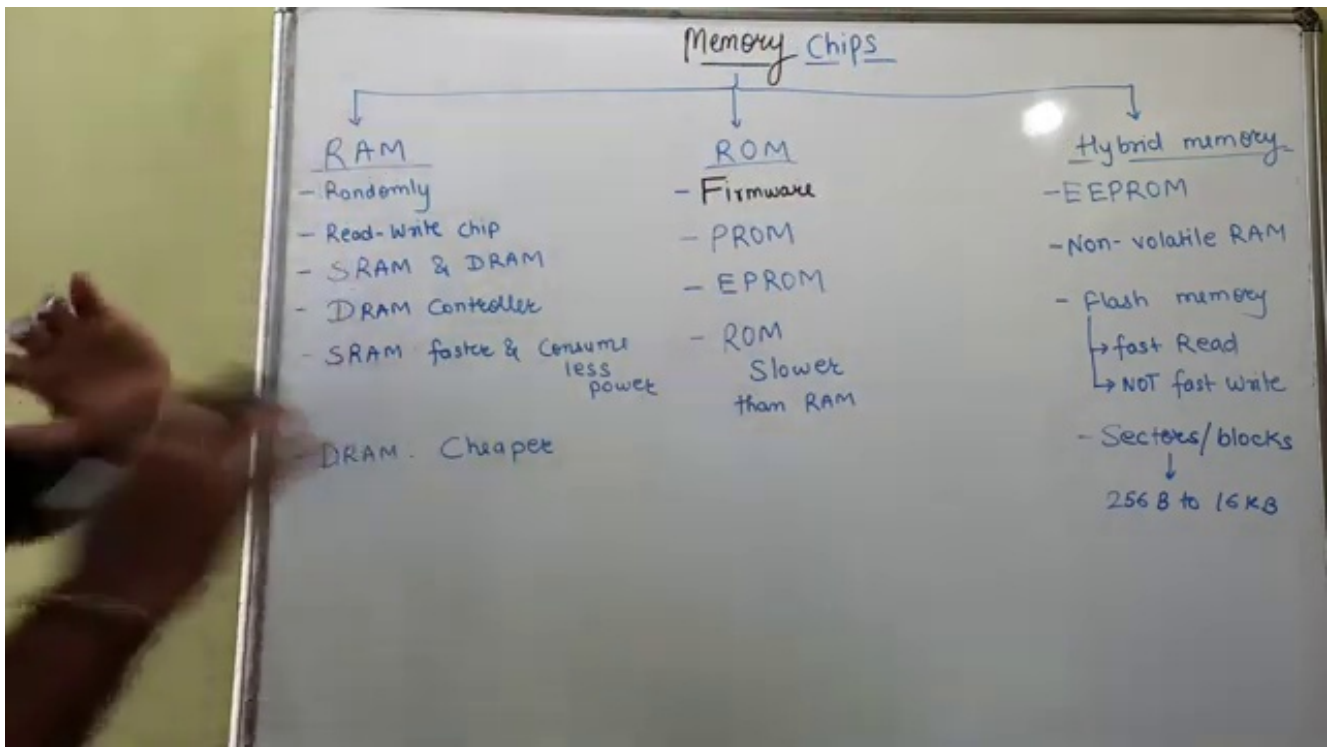 Memory Chips
RAM
- Randomly
- Read-Write chip
- SRAM & DRAM
- DRAM Controller
- SRAM faster & Consume
less
power
- DRAM. Cheaper
ROM
- Firmware
- PROM
- EPROM
- ROM
Slower
than RAM
Hybrid memory
- EEPROM
- Non-volatile RAM
- Flash memory
→ fast Read
→ NOT fast write
- Sectors/blocks
↓
256 B to 16 KB